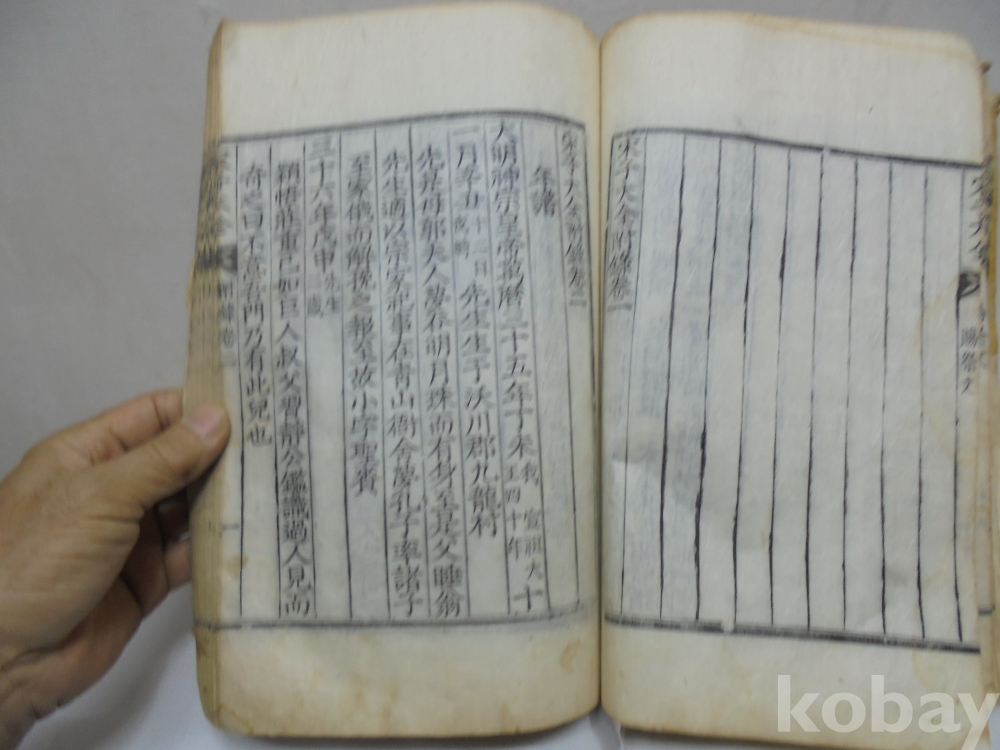 宋子大全附錄卷一
宋子大全附錄卷二
年譜
大明神宗皇帝萬曆三十五年丁未我 宣祖大王四十年十
一月 十二日 先生生于沃川郡九龍村
先是母郭夫人夢吞明月珠而有身至是父睡翁
先生適以宗家祀事在青山衙舍夢孔子率諸子
至家俄而解娩之報至故小字聖賚
三十六年戊申先生二歲
穎悟莊重已如巨人叔父習靜公鑑識過人見而
奇之曰不意吾門乃有此兒也
一
kobay